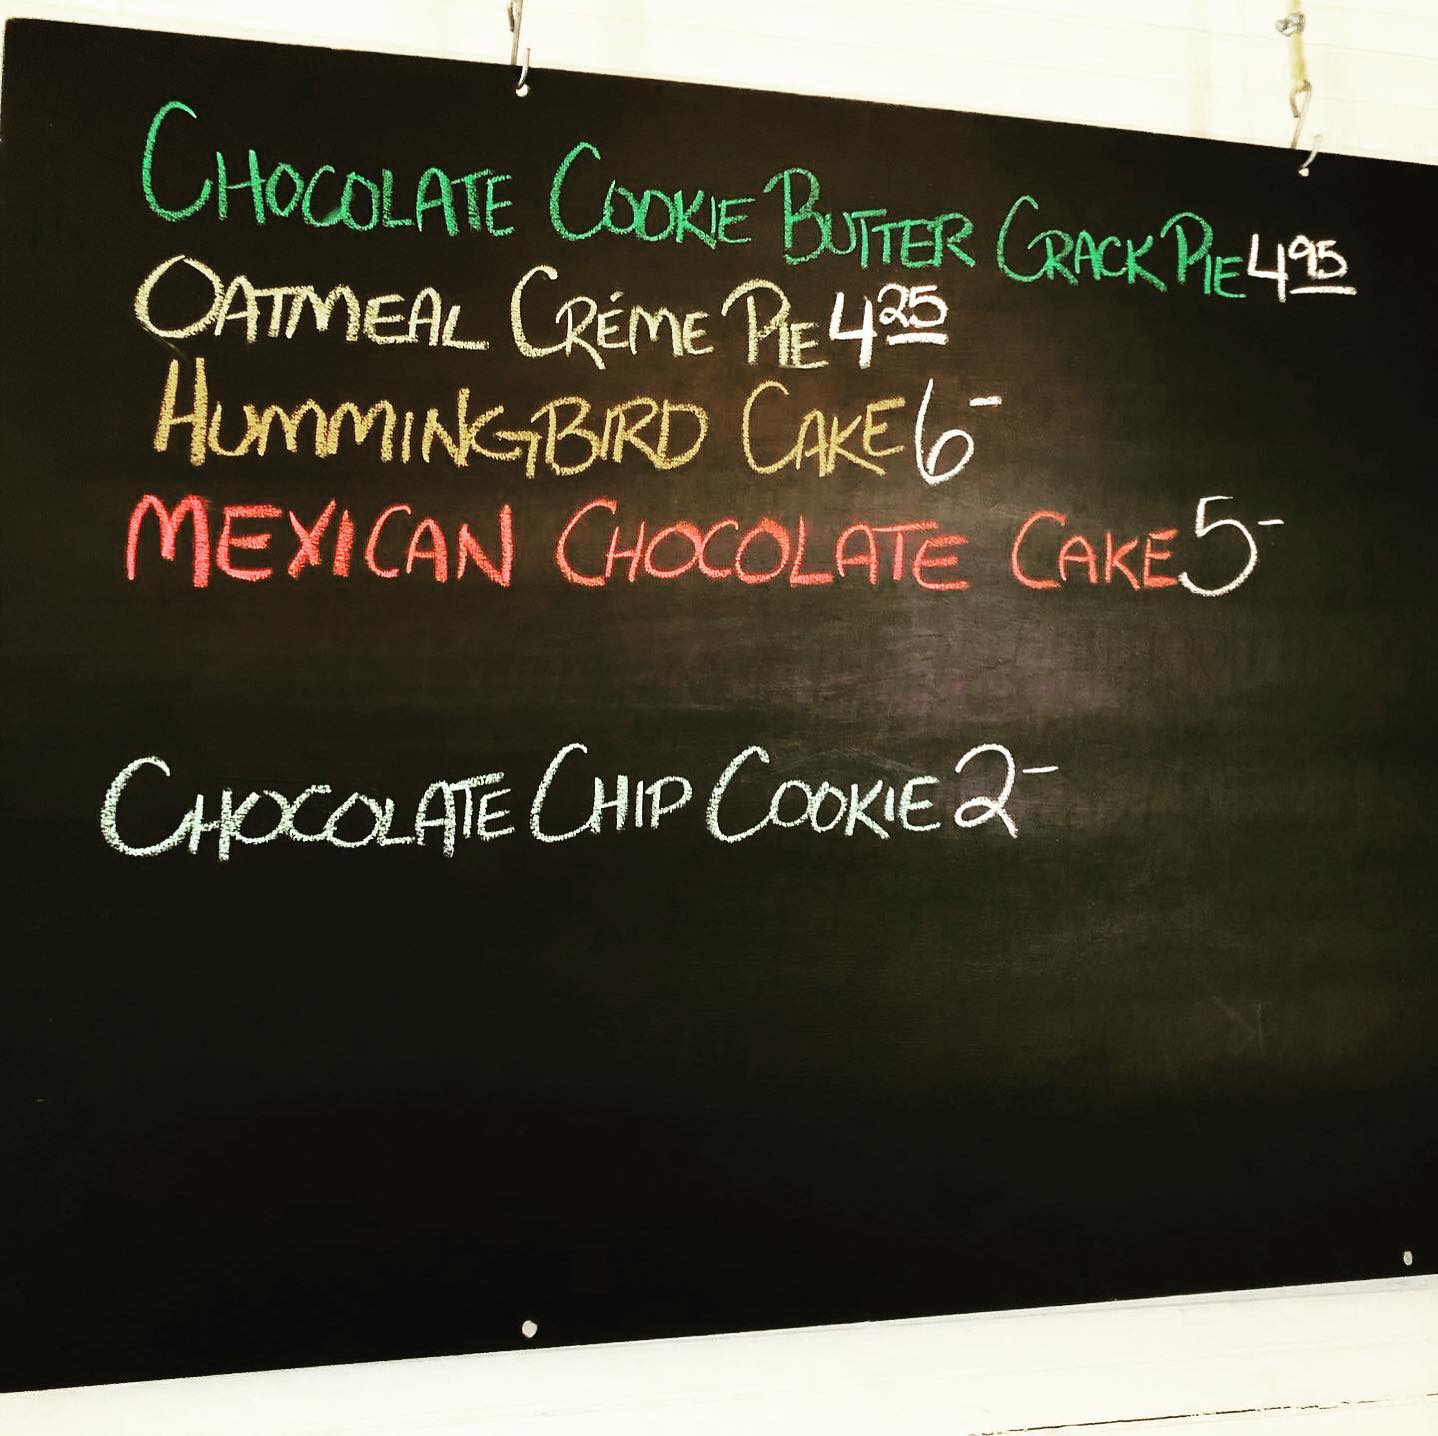 CHOCOLATE COOKIE BUTTER CRACK PIE 4 95
OATMEAL CRÉME PIE 4 25
HUMMINGBIRD CAKE 6-
MEXICAN CHOCOLATE CAKE 5-
CHOCOLATE CHIP COOKIE 2-